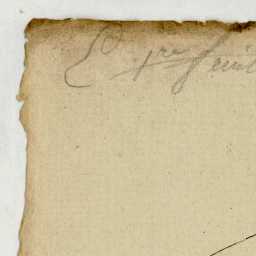 E 1re feuil